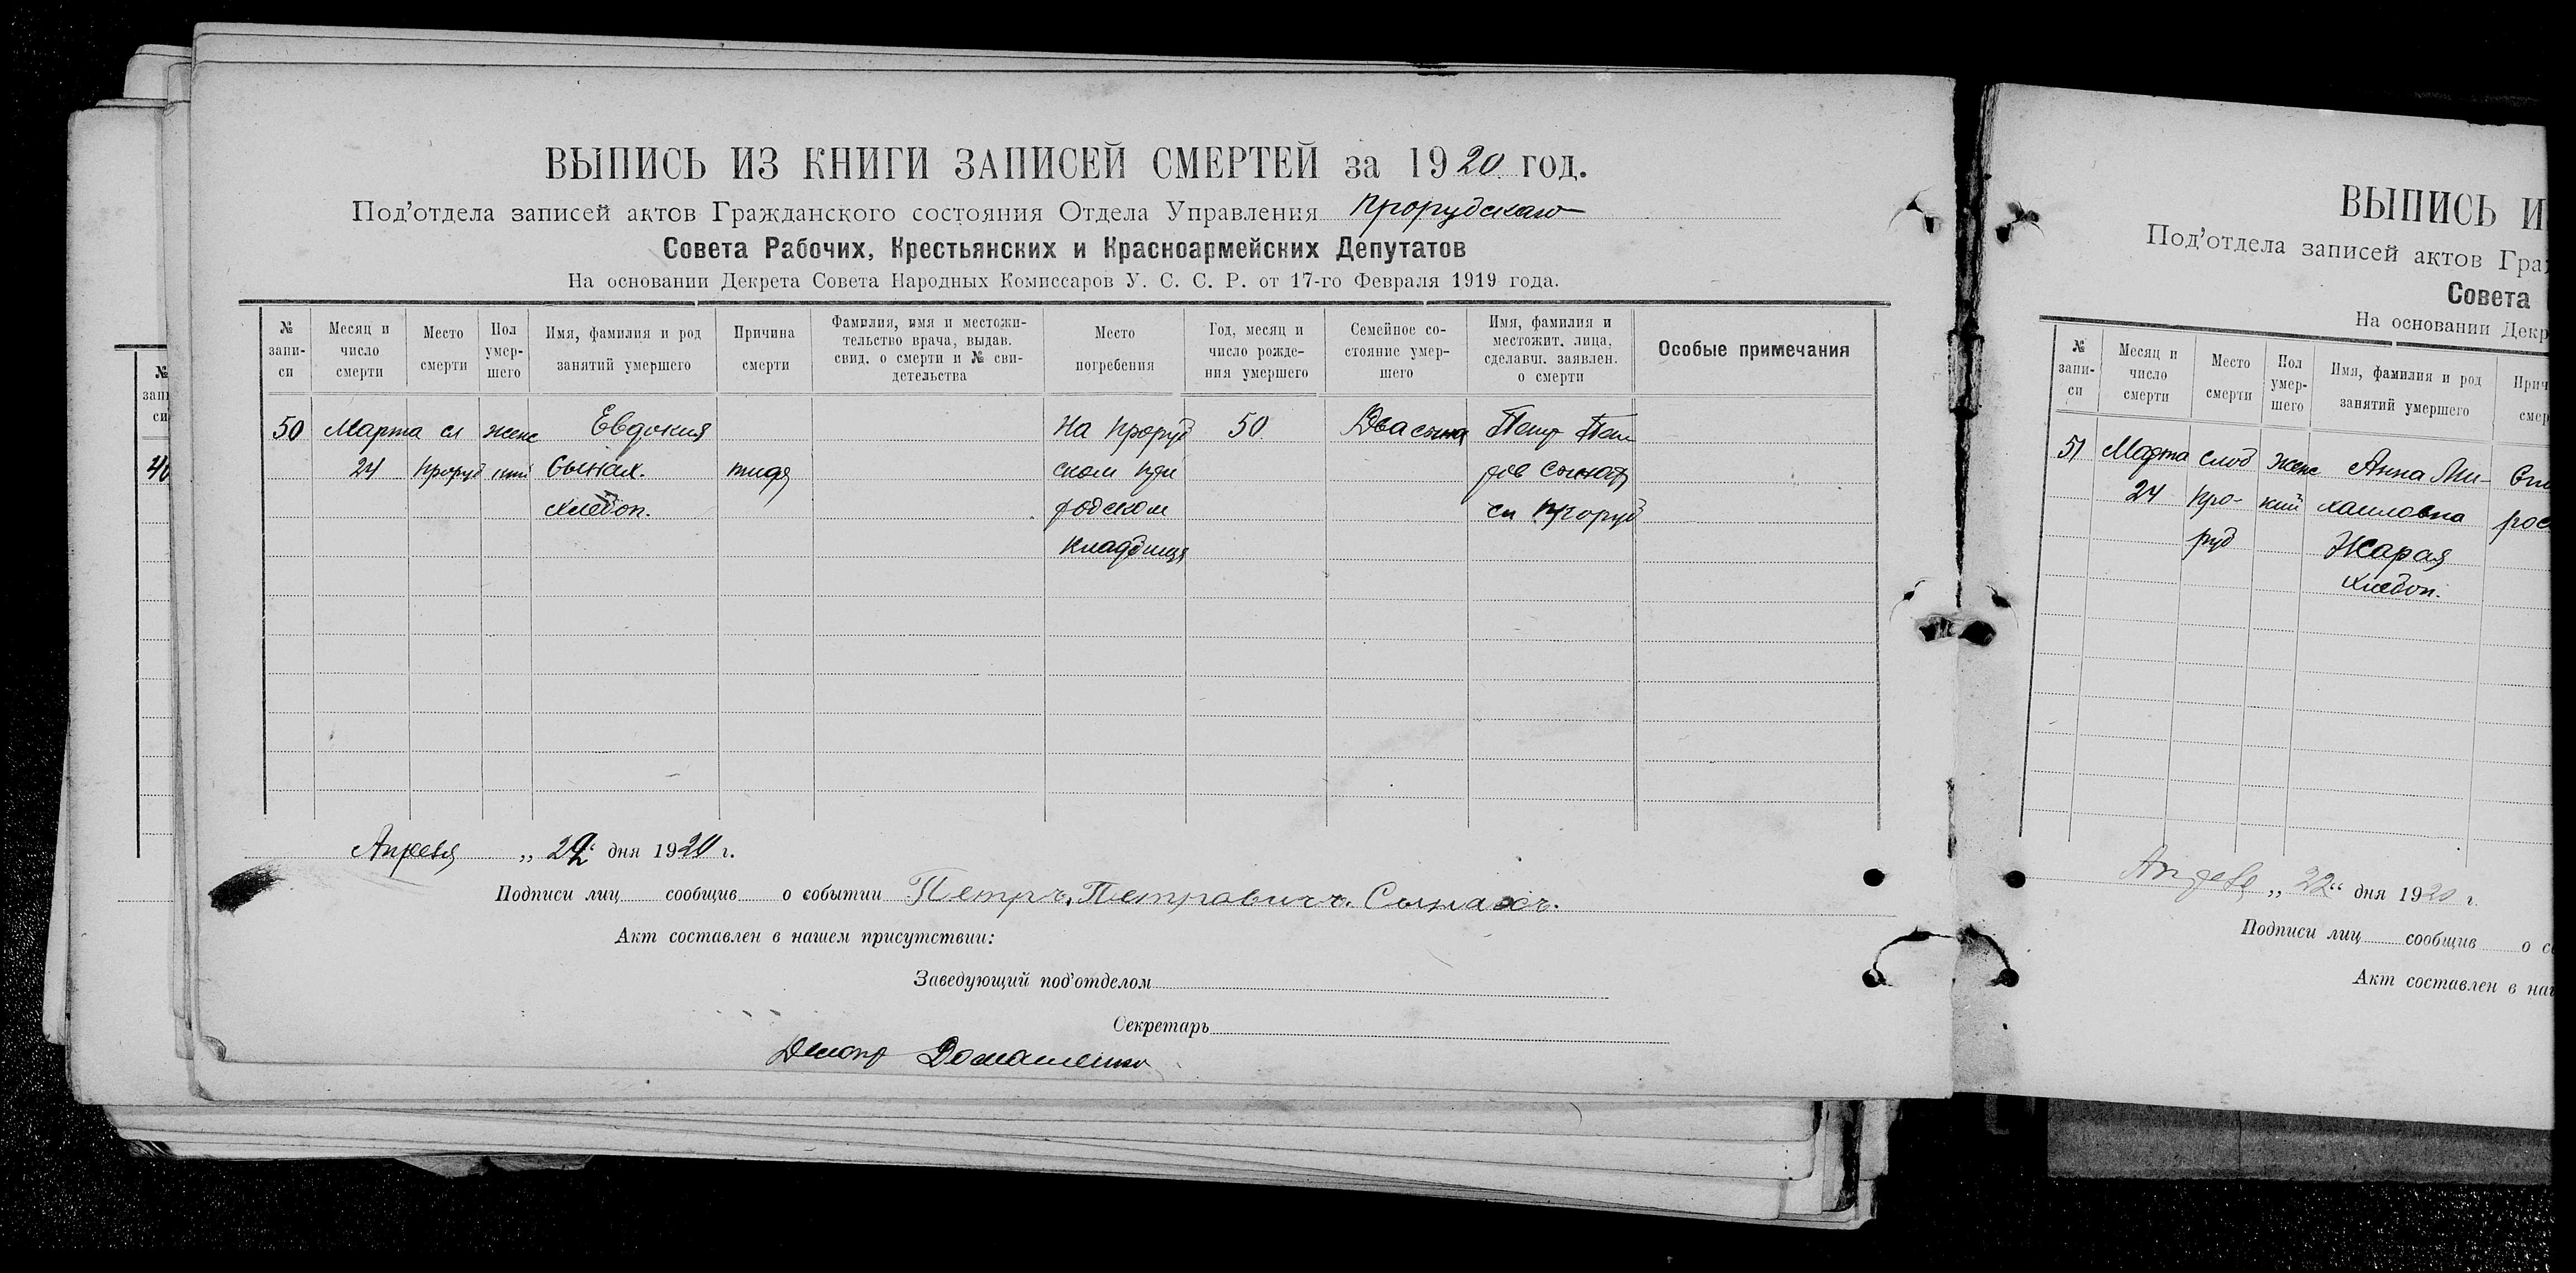 ВЫПИСЬ ИЗ КНИГИ ЗАПИСЕЙ СМЕРТЕЙ за 1920 год.
Под'отдела записей актов Гражданского состояния Отдела Управления Прорубскаго
Совета Рабочих, Крестьянских и Красноармейских Депутатов
На основании Декрета Совета Народных Комиссаров У. С. С. Р. от 17-го Февраля 1919 года.
№ запи- си
Месяц и число смерти
Место смерти
Пол умер- шего
Имя, фамилия и род занятий умершего
Причина смерти
Фамилия, имя и местожи- тельство врача, выдав. свид. о смерти и № сви- детельства
Место погребения
Год, месяц и число рожде- ния умершего
Семейное со- стояние умер- шего
Имя, фамилия и местожит. лица, сделавш. заявлен. о смерти
Особые примечания
50 Марта сл женс Евдокия На Проруб 50. Два сына Петр Пет
24 Проруб кий Сынах. ском
хлебоп. родском сл Проруб
кладбищя
Апреля „ 22“ дня 1920 г.
Подписи лиц сообщив о событии Петръ. Петровичъ. Сынахъ.
Акт составлен в нашем присутствии:
Заведующий под'отделом
Секретарь
Домашенко
№
запи
си
46
ВЫПИСЬ И
Под'отдела записей актов Граж
Совета
На основании Декр
№ запи- си
Месяц и число смерти
Место смерти
Пол умер- шего
Имя, фамилия и род занятий умершего
Прич смер
51 Марта слоб женс Анна Ми-
24 Про- кий хаиловна рос
руб Жарая
хлебоп.
Апреля „ 22“ дня 1920 г.
Подписи лиц сообщив о со
Акт составлен в наш